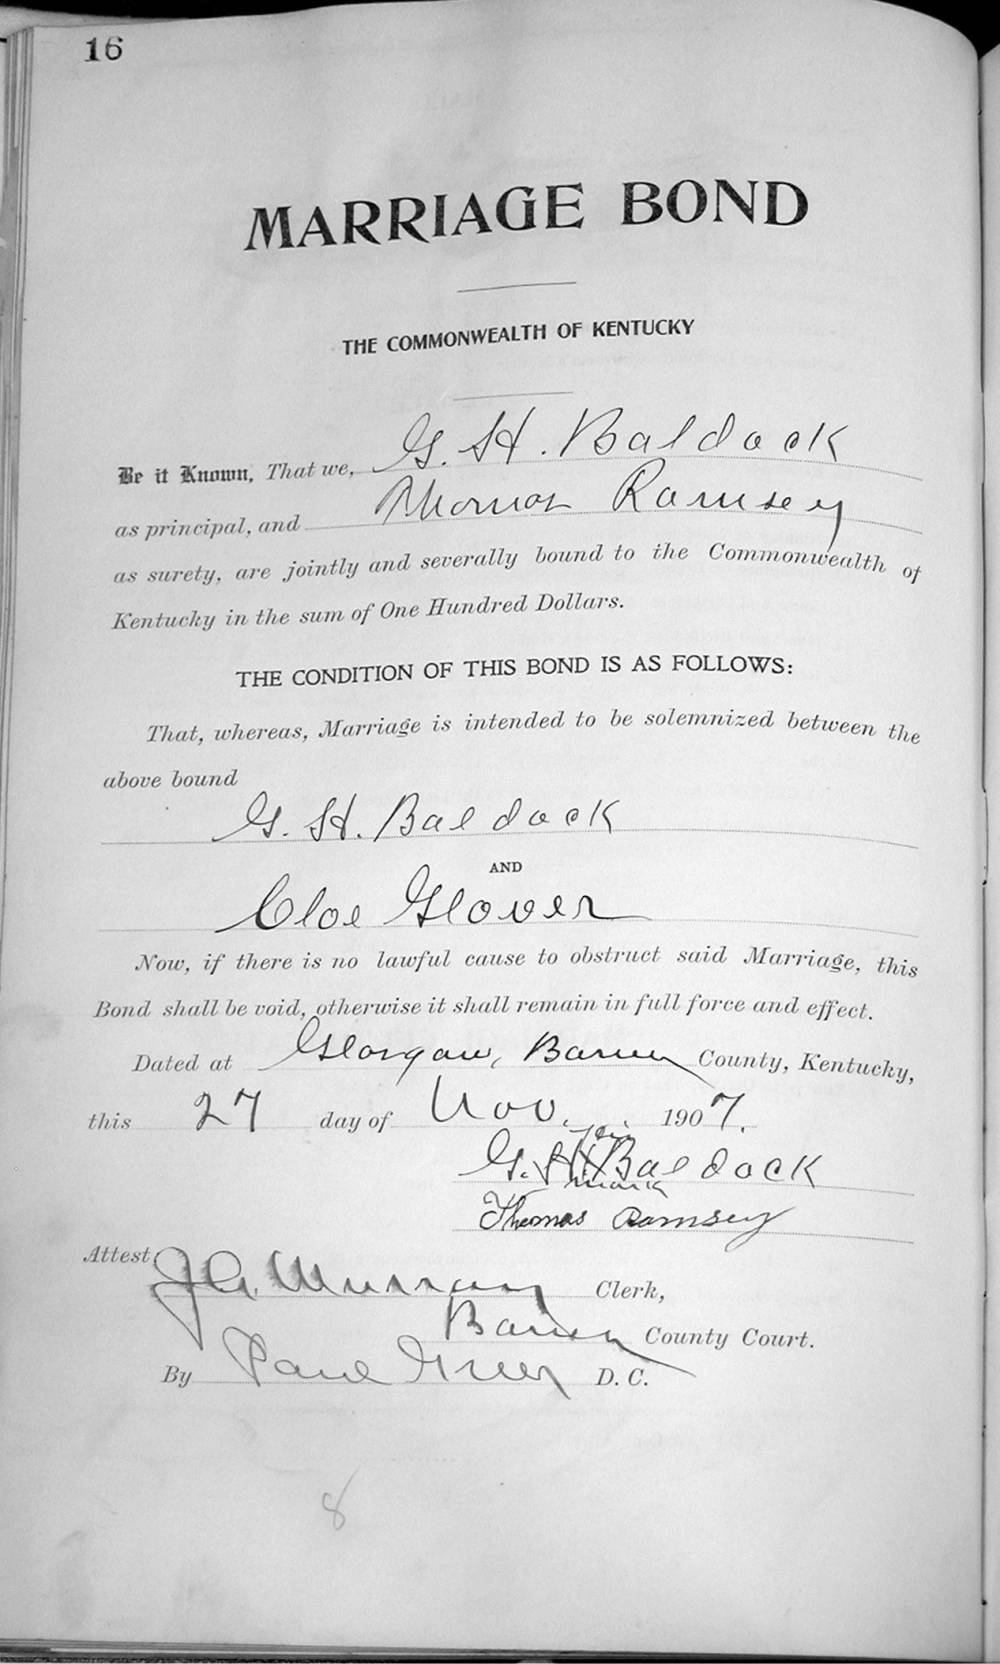 16
MARRIAGE BOND
THE COMMONWEALTH OF KENTUCKY
Be it Known, That we, G. H. Baldock
as principal, and Thomas Ramsey
as surety, are jointly and severally bound to the Commonwealth of
Kentucky in the sum of One Hundred Dollars.
THE CONDITION OF THIS BOND IS AS FOLLOWS:
That, whereas, Marriage is intended to be solemnized between the
above bound
G. H. Baldock
AND
Cloe Glover
Now, if there is no lawful cause to obstruct said Marriage, this
Bond shall be void, otherwise it shall remain in full force and effect.
Dated at Glasgow, Barren County, Kentucky,
this 27 day of Nov. 1907.
his
G. H. X Baldock
mark
Thomas Ramsey
Attest, J. G. Murray Clerk,
Barren County Court.
By Paul Greer D. C.
8